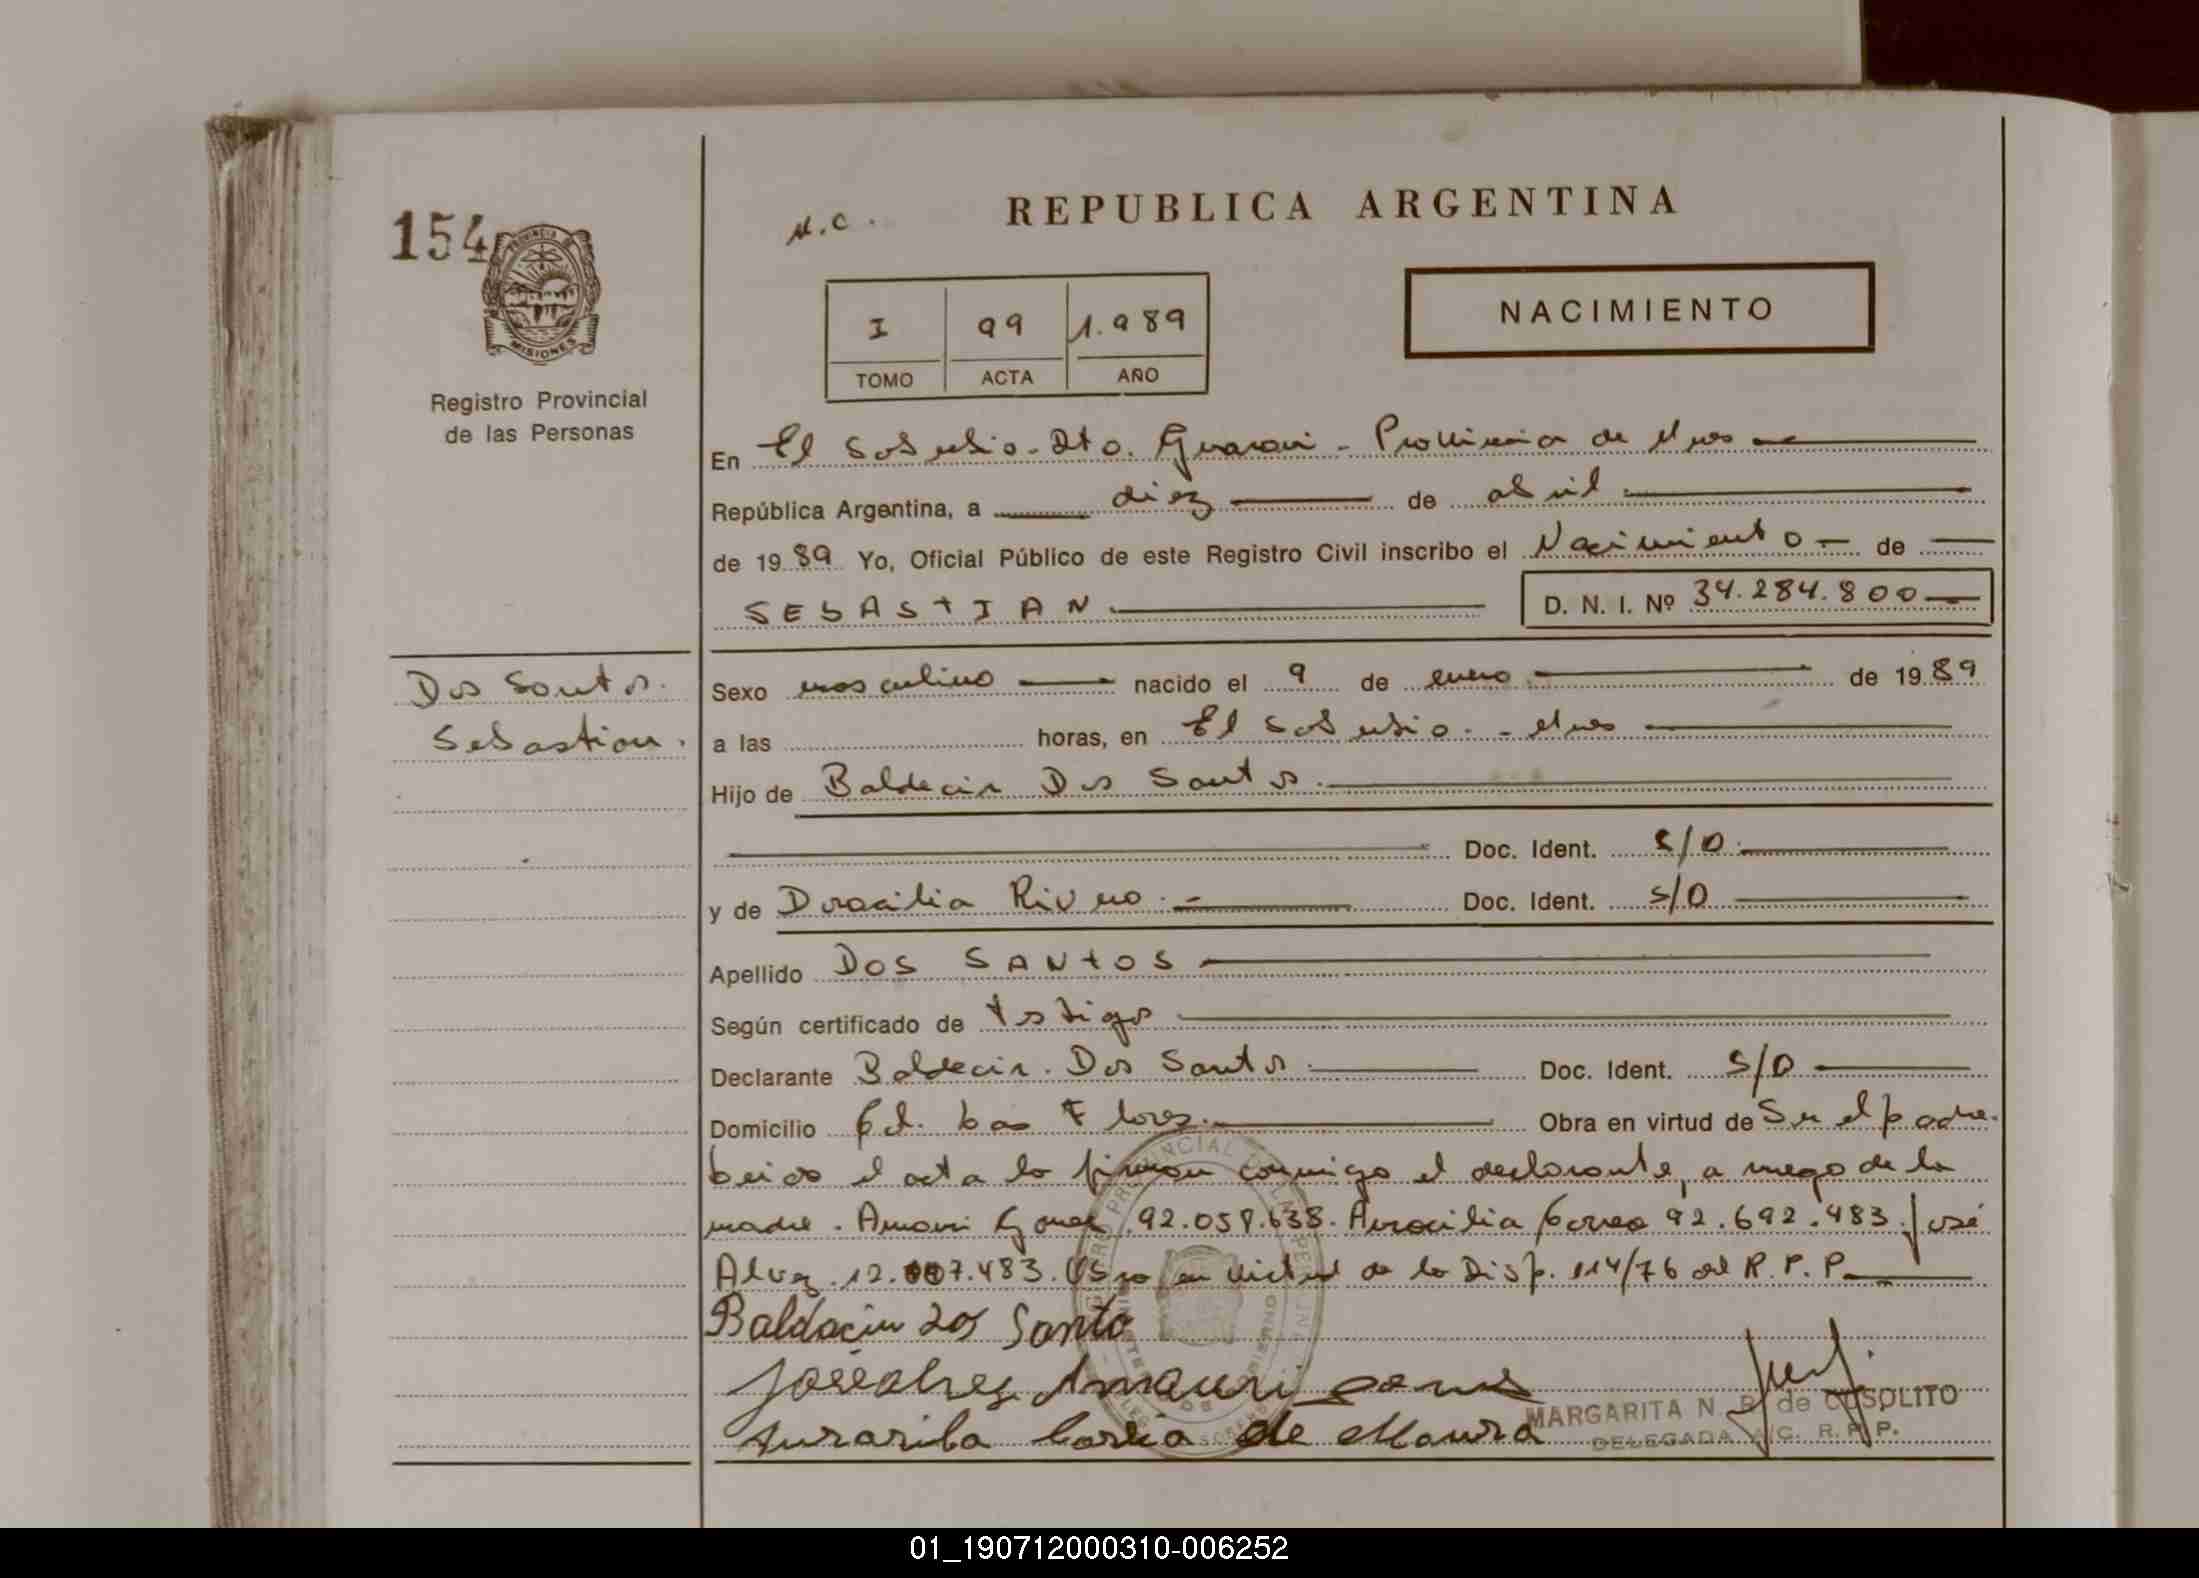 154
PROVINCIA DE
MISIONES
Registro Provincial
de las Personas
N.C.
REPUBLICA ARGENTINA
I 99 1.989
TOMO ACTA AÑO
NACIMIENTO
En El Soberbio - Dto. Guaraní - Provincia de Mnes
República Argentina, a diez de abril
de 1989 Yo, Oficial Público de este Registro Civil inscribo el Nacimiento - de
SEBASTIAN D. N. I. Nº 34.284.800
Dos Santos.
Sebastian.
Sexo masculino nacido el 9 de enero de 1989
a las horas, en El Soberbio. - Mnes
Hijo de Baldecir Dos Santos.
Doc. Ident. S/D.
y de Doracilia Rivero. - Doc. Ident. S/D
Apellido DOS SANTOS
Según certificado de testigos
Declarante Baldecir. Dos Santos. Doc. Ident. S/D
Domicilio Col. Las Flores. Obra en virtud de Ser el padre.
Leida el acta la firman conmigo el declarante, a ruego de la
madre. Amauri 92.058.638. Auracilia Correa 92.692.483. José
Alvez. 12. 7.483. Obra en virtud de la Disp. 114/76 del R. P. P.
Baldacin dos Santo
José Alvez Amauri
Correia de Moura
MARGARITA N. B. de CUSOLITO
DELEGADA A/C. R. P. P.
01_190712000310-006252